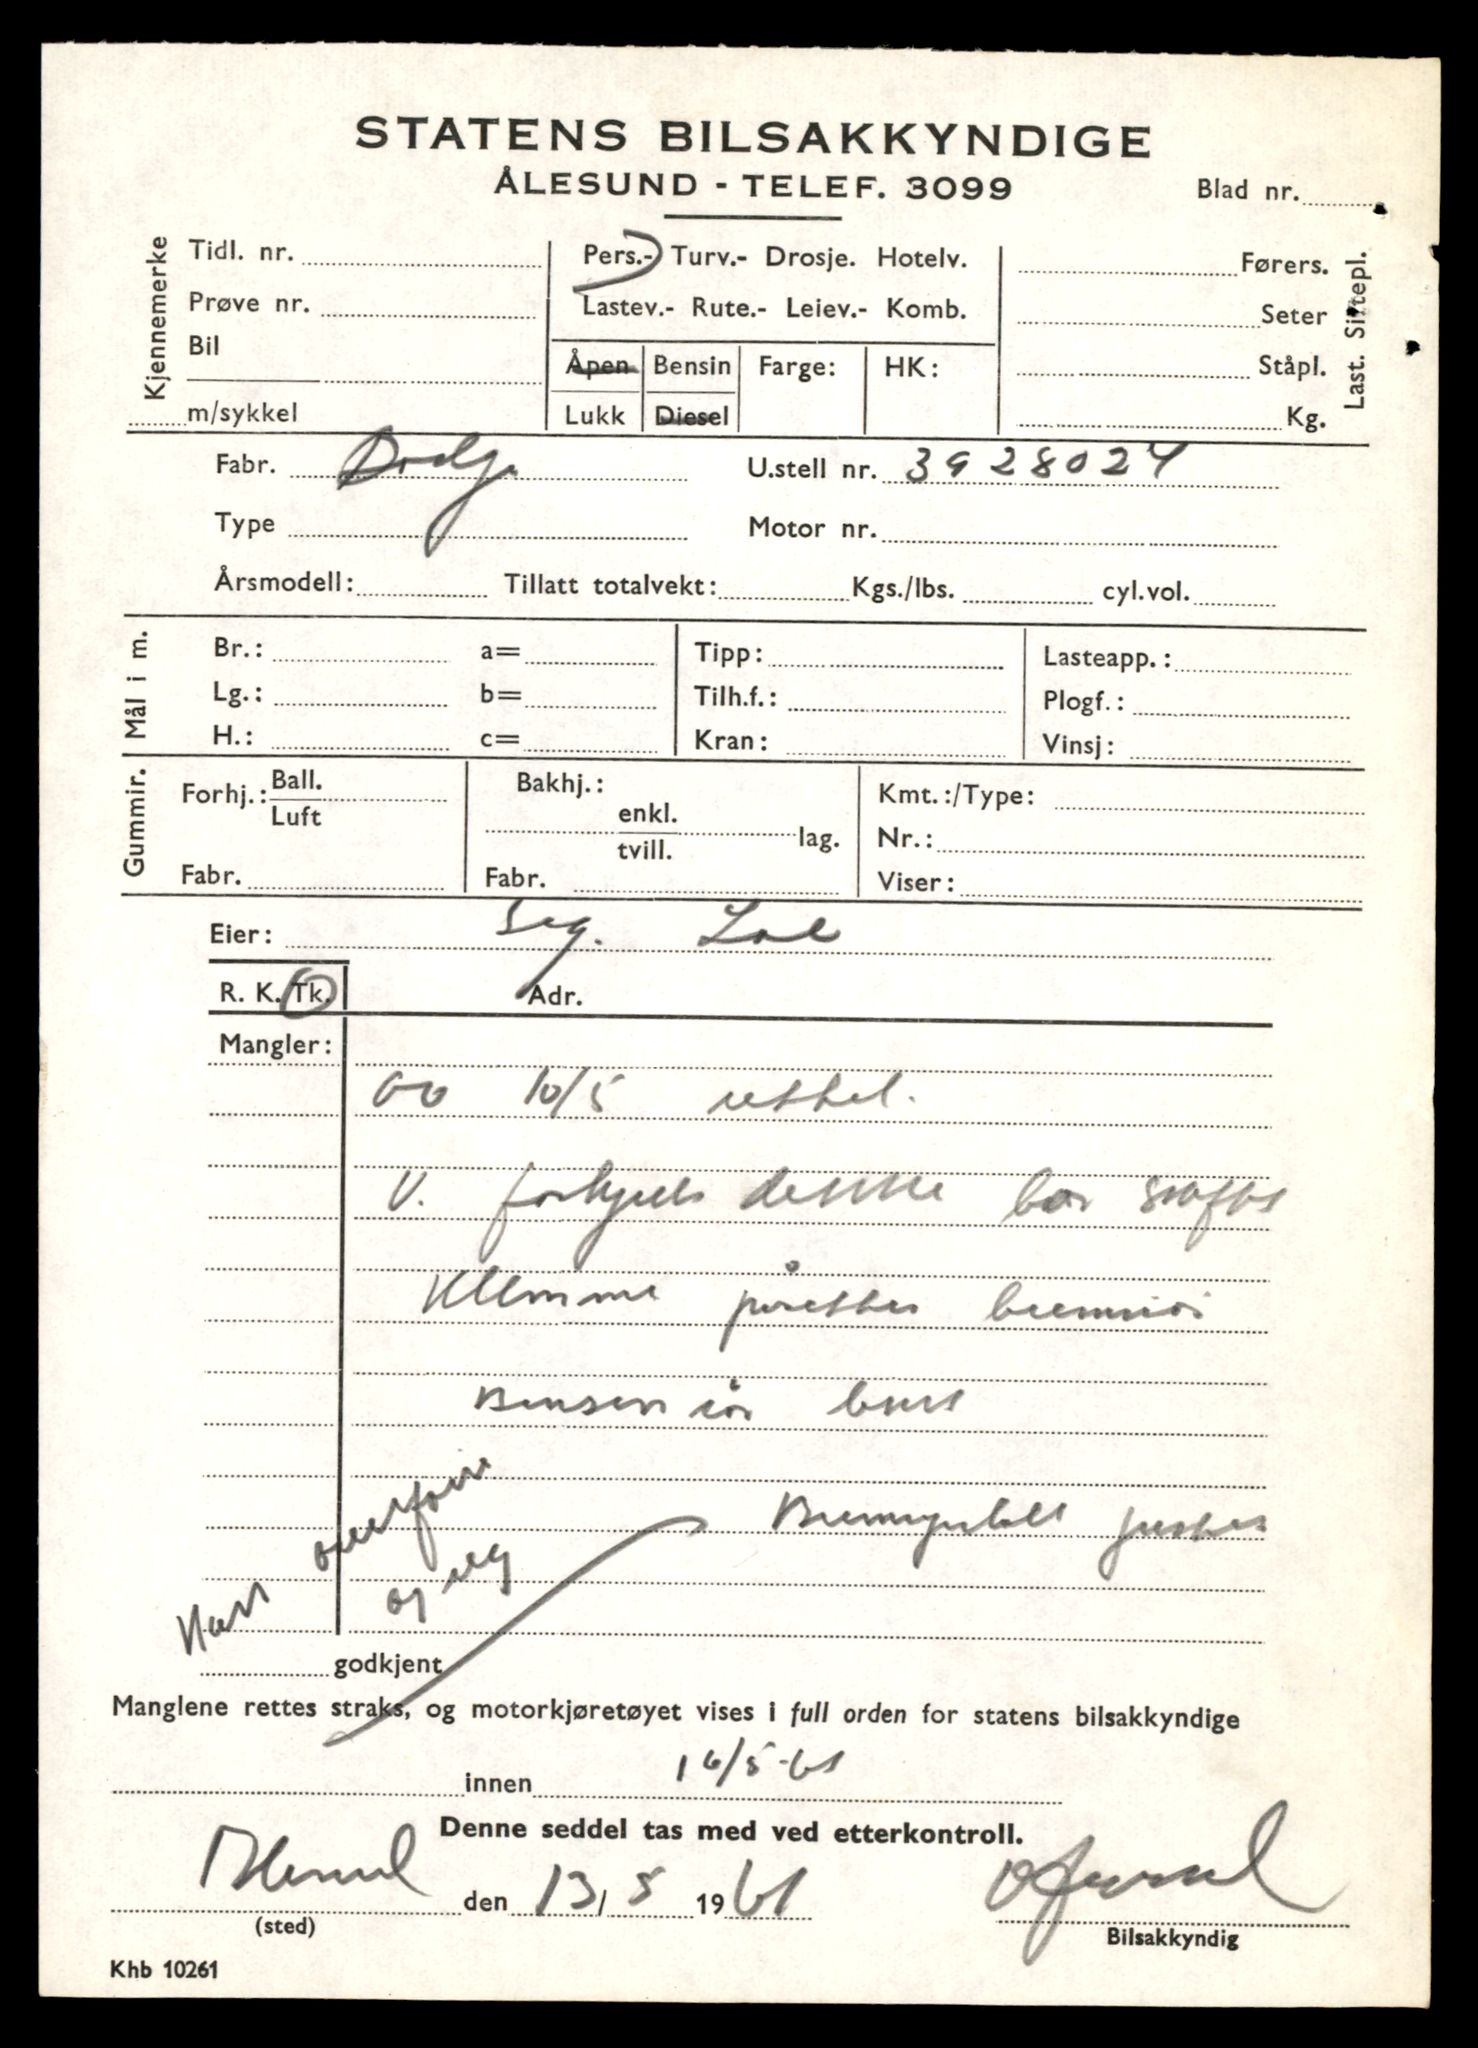 STATENS BILSAKKYNDIGE
ÅLESUND - TELEF. 3099
Blad nr.
Kjennemerke
Tidl. nr.
Prøve nr.
Bil
m/sykkel
Pers.- Turv.- Drosje. Hotelv.
Lastev.- Rute.- Leiev.- Komb.
Åpen Bensin Farge: HK:
Lukk Diesel
Førers.
Seter
Ståpl.
Kg.
Last. Sittepl.
Fabr. Dodge U.stell nr. 3928024
Type Motor nr.
Årsmodell: Tillatt totalvekt: Kgs./lbs. cyl.vol.
Mål i m.
Br.: a= Tipp: Lasteapp.:
Lg.: b= Tilh.f.: Plogf.:
H.: c= Kran: Vinsj:
Gummir.
Forhj.: Ball. Luft
Fabr.
Bakhj.:
enkl.
tvill. lag.
Fabr.
Kmt.:/Type:
Nr.:
Viser:
Eier:
R. K. Tk. Adr.
Mangler:
10/5
V. forhjuls dekke bør
Klemme påsettes bremserør
Bensin rør
justeres
og
godkjent
Manglene rettes straks, og motorkjøretøyet vises i full orden for statens bilsakkyndige
innen 16/5-61
Denne seddel tas med ved etterkontroll.
den 13/5 1961
(sted)
Bilsakkyndig
Khb 10261